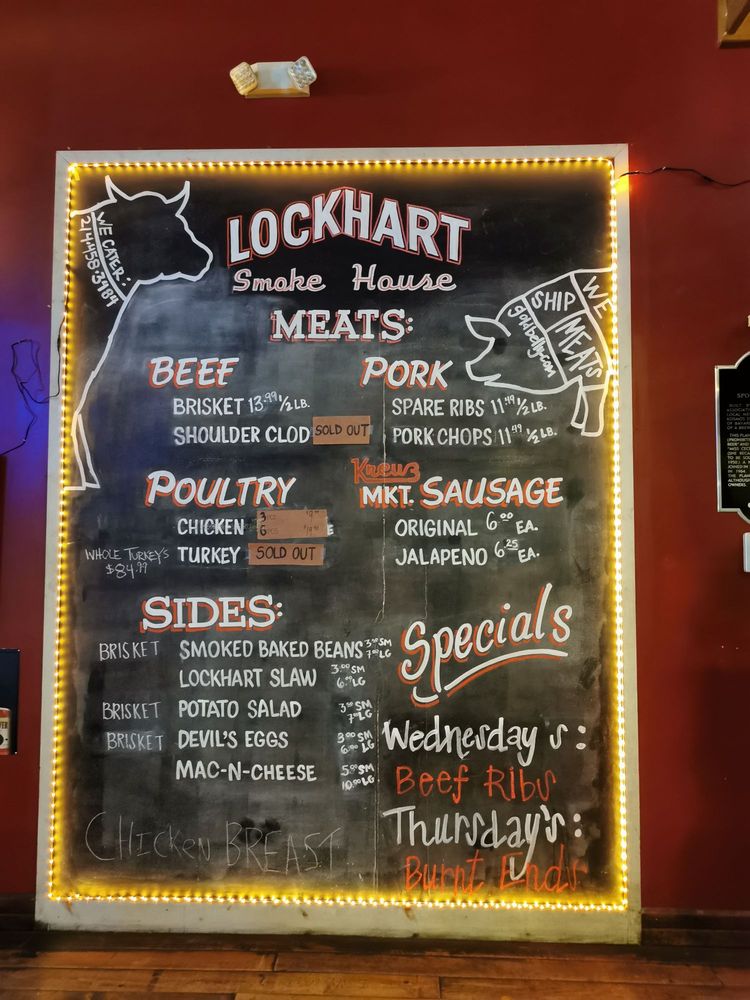 WE CATER:
214·458·3484
LOCKHART
Smoke House
MEATS:
WE
SHIP
MEATS
goldbelly.com
BEEF
BRISKET 13.99 1/2 LB.
SHOULDER CLOD SOLD OUT
PORK
SPARE RIBS 11.49 1/2 LB.
PORK CHOPS 11.49 1/2 LB.
POULTRY
CHICKEN 3 PCS 6 PCS
WHOLE TURKEY'S
$84.99
TURKEY SOLD OUT
Kreuz
MKT. SAUSAGE
ORIGINAL 6.00 EA.
JALAPENO 6.25 EA.
SIDES:
BRISKET SMOKED BAKED BEANS SM LG
LOCKHART SLAW 3.00 SM LG
BRISKET POTATO SALAD SM LG
BRISKET DEVIL'S EGGS 3.00 SM 6.00 LG
MAC-N-CHEESE SM 10.00 LG
CHICKEN BREAST
Specials
Wednesday's:
Beef Ribs
Thursday's:
Burnt Ends